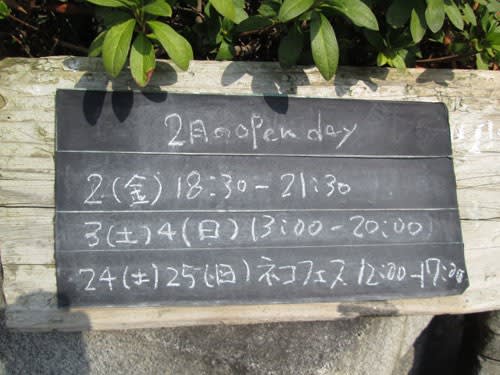 2月のopen day
2(金) 18:30-21:30
3(土)4(日) 13:00-20:00
24(土)25(日)ネコフェス 12:00-17:00